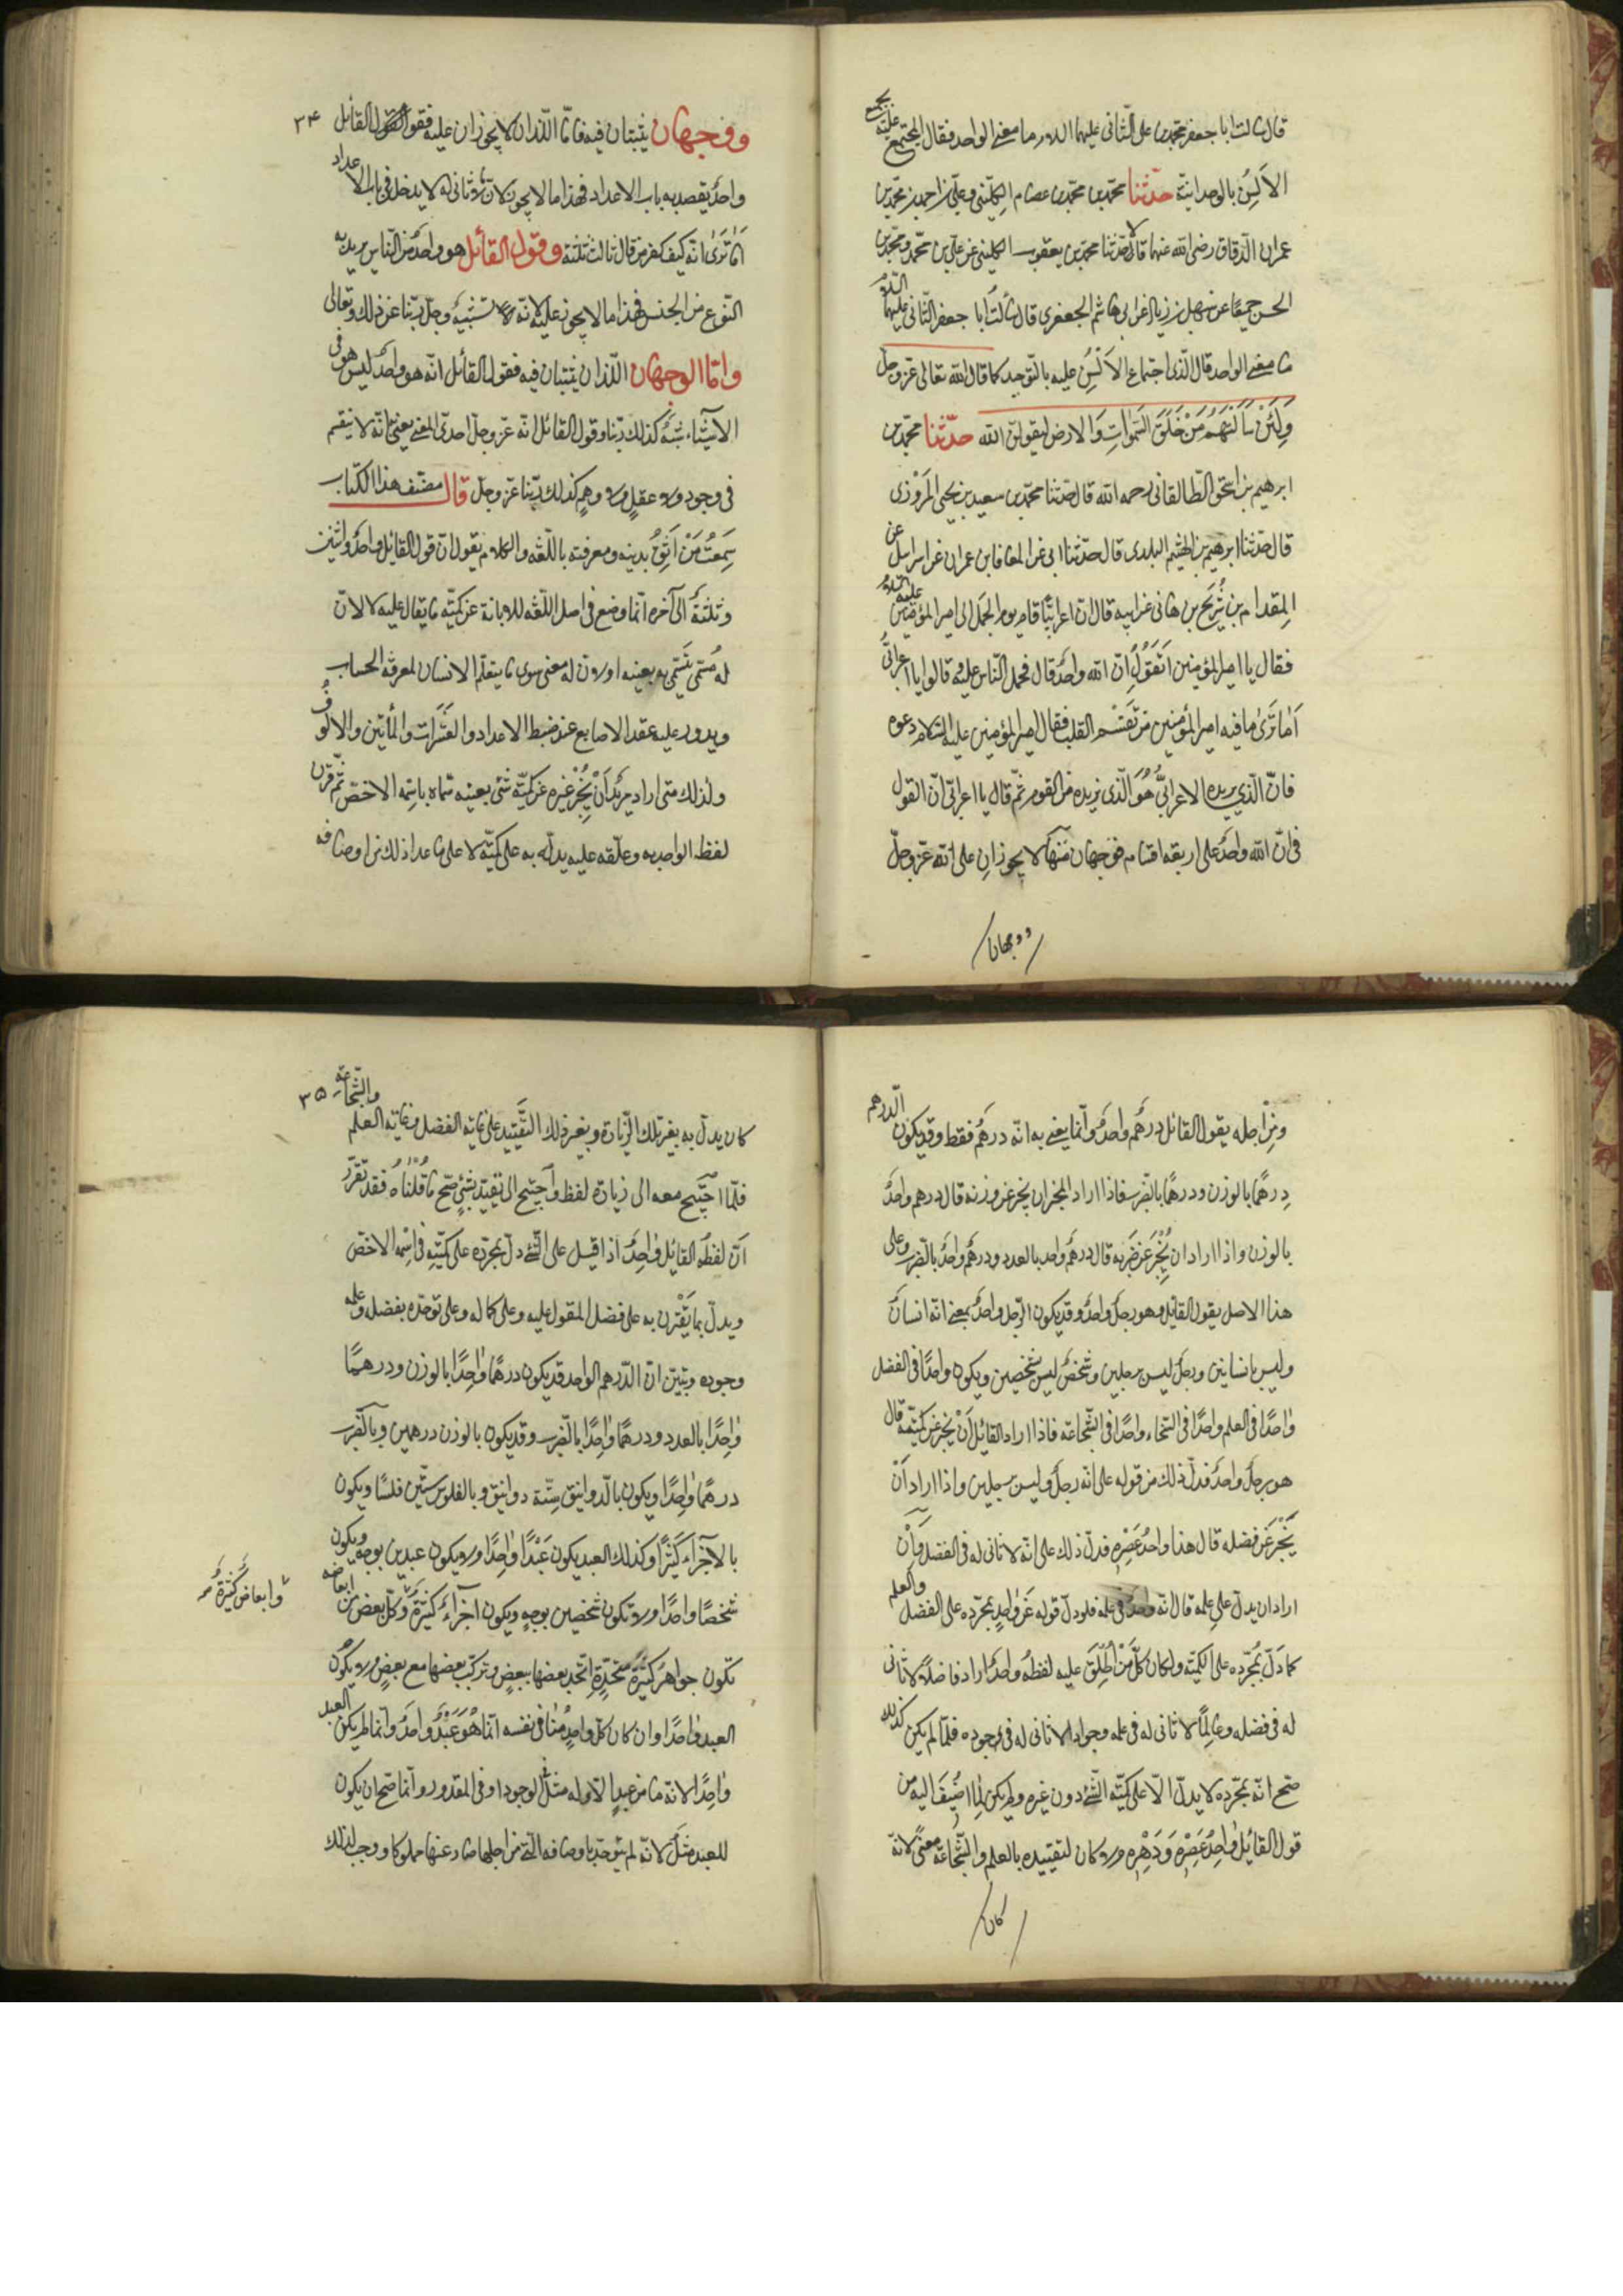 قال سالت ابا جعفر محمد بن علی الثانی علیهما السلام ما معنی الواحد فقال المجتمع علیه بجمیع
الالسن بالوحدانیة حدثنا محمد بن محمد بن عصام الکلینی و علی بن احمد بن محمد بن
عمران الدقاق رضی الله عنهما قالا حدثنا محمد بن یعقوب الکلینی عن علی بن محمد و محمد بن
الحسن جمیعا عن سهل بن زیاد عن ابی هاشم الجعفری قال سألت ابا جعفر الثانی علیهما السلام
ما معنی الواحد قال الذی اجتماع الالسن علیه بالتوحید کما قال الله تعالی عز وجل
وَلَئِنْ سَأَلْتَهُمْ مَنْ خَلَقَ السَّمٰوَاتِ وَالارض لیقولن الله حدثنا محمد بن
ابرهیم بن اسحق الطالقانی رحمه الله قال حدثنا محمد بن سعید بن یحیی المروزی
قال حدثنا ابرهیم بن الهیثم البلدی قال حدثنا ابی عن المعافا بن عمران عن اسرائیل عن
المقدام بن شریح بن هانی عن ابیه قال ان اعرابیا قام یوم الجمل الی امیر المؤمنین علیه السلام
فقال یا امیر المؤمنین اتقول ان الله واحد قال فحمل الناس علیه و قالوا یا اعرابی
اما تری ما فیه امیر المؤمنین من تقسم القلب فقال امیر المؤمنین علیه السلام دعوه
فان الذی یریده الاعرابی هو الذی نریده من القوم ثم قال یا اعرابی ان القول
فی ان الله واحد علی اربعة اقسام فوجهان منها لا یجوزان علی الله عز وجل
ووجهان
۳۴
ووجهان یثبتان فیه فاما اللذان لا یجوزان علیه فقول القائل
واحد یقصد به باب الاعداد فهذا ما لا یجوز لان ما لا ثانی له لا یدخل فی باب الاعداد
اما تری انه کیف کفر من قال ثالث ثلثة وقول القائل هو واحد من الناس یرید به
النوع من الجنس فهذا ما لا یجوز علیه لانه تشبیه وجل ربنا عن ذلک وتعالی
واما الوجهان اللذان یثبتان فیه فقول القائل انه هو واحد لیس هو فی
الاشیاء شبه کذلک ربنا وقول القائل انه عز وجل احدی المعنی یعنی انه لا ینقسم
فی وجود ولا عقل ولا وهم کذلک ربنا عز وجل قال مصنف هذا الکتاب
سمعت من اثق بدینه ومعرفته باللغه والکلام یقول ان قول القائل واحد واثنین
وثلثة الی آخره انما وضع فی اصل اللغه للابانة عن کمیة ما یقال علیه لا لان
له مسمی یتسمی به بعینه او لان له معنی سوی ما یتعلم الانسان لمعرفة الحساب
ویدور علیه عقد الاصابع عند ضبط الاعداد والعشرات والمأتین والالوف
ولذلک متی اراد مرید ان یخبر غیره عن کمیة شئ بعینه سماه باسمه الاخص ثم قرن
لفظ الواحد به وعلقه علیه یدل به علی کمیته لا علی ما عدا ذلک من اوصافه
ومن اجله یقول القائل درهم واحد وانما یعنی به انه درهم فقط وقد یکون الدرهم
درهما بالوزن ودرهما بالضرب فاذا اراد المخبر ان یخبر عن وزنه قال درهم واحد
بالوزن واذا اراد ان یخبر عن ضربه قال درهم واحد بالعدد ودرهم واحد بالضرب وعلی
هذا الاصل یقول القائل هو رجل واحد وقد یکون الرجل واحد بمعنی انه انسان
ولیس بانسانین ورجل لیس برجلین وشخص لیس بشخصین ویکون واحدا فی الفضل
واحدا فی العلم واحدا فی السخاء واحدا فی الشجاعة فاذا اراد القائل ان یخبر عن کمیته قال
هو رجل واحد فدل ذلک من قوله علی انه رجل ولیس برجلین واذا اراد ان
یخبر عن فضله قال هذا واحد عصره فدل ذلک علی انه لا ثانی له فی الفضل وان
اراد ان یدل علی علمه قال انه واحد فی علمه فلو دل قوله عن واحد بمجرده علی الفضل والعلم
کما دل بمجرده علی الکمیة ولکان کل من اطلق علیه لفظه واحد اراد فاضلا لا ثانی
له فی فضله وعالما لا ثانی له فی علمه وجواد الا ثانی له فی وجوده فلما لم یکن کذلک
صح انه بمجرده لا یدل الا علی کمیة الشئ دون غیره ولم یکن لما اضیف الیه من
قول القائل واحد عصره ودهره ولا کان لتقییده بالعلم والشجاعة معنی لانه
کان
۳۵
کان یدل به بغیر تلک الزیادة وبغیر ذلک التقیید علی غایة الفضل وغایة العلم والشجاعة
فلما احتیج معه الی زیادة لفظ واحتیج الی تقیید بشئ صح ما قلناه فقد تقرر
ان لفظه القائل واحد اذا قیل علی الشئ دل بمجرده علی کمیته فی اسمه الاخص
ویدل بما یقترن به علی فضل المقول علیه وعلی کماله وعلی توحده بفضله وعلمه
وجوده وتبین ان الدرهم الواحد قد یکون درهما واحدا بالوزن ودرهما
واحدا بالعدد ودرهما واحدا بالضرب وقد یکون بالوزن درهمین وبالضرب
درهما واحدا ویکون بالدوانیق ستة دوانیق وبالفلوس ستین فلسا ویکون
بالاجزاء کثیرا وکذلک العبد یکون عبدا واحدا ولا یکون عبدین بوجه ویکون
شخصا واحدا ولا یکون شخصین بوجه ویکون اجزاء کثیرة وکل بعض من ابعاضه
وابعاض کثیرة
تکون جواهر کثیرة متحدة اتحد بعضها ببعض وترکب بعضها مع بعض ولا یکون
العبد واحدا وان کان کل واحد منا فی نفسه انما هو عبد واحد وانما لم یکن العبد
واحدا لانه ما من عبد الا وله مثل فی الوجود او فی المقدور وانما صح ان یکون
للعبد مثل لانه لم یتوحد باوصافه التی من اجلها صار عنها مملوکا ووجب لذلک